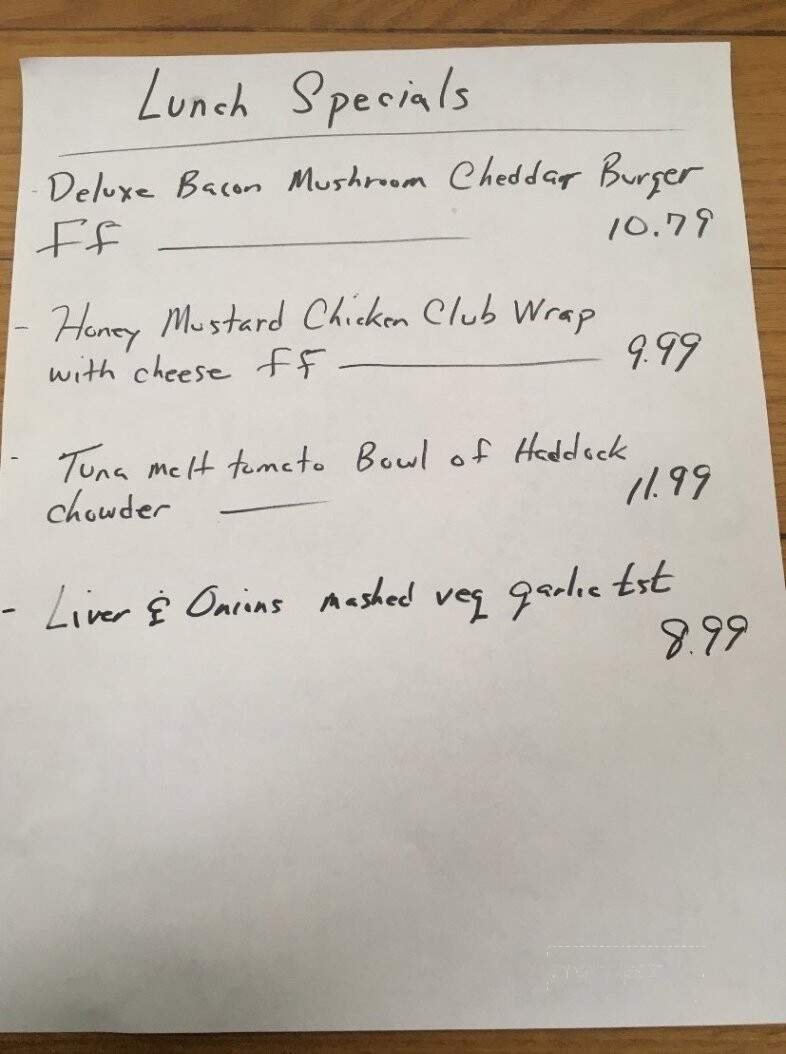 Lunch Specials
- Deluxe Bacon Mushroom Cheddar Burger
FF 10.79
- Honey Mustard Chicken Club Wrap
with cheese FF 9.99
- Tuna melt tomato Bowl of Haddock
chowder 11.99
- Liver & Onions mashed veg garlic tst
8.99